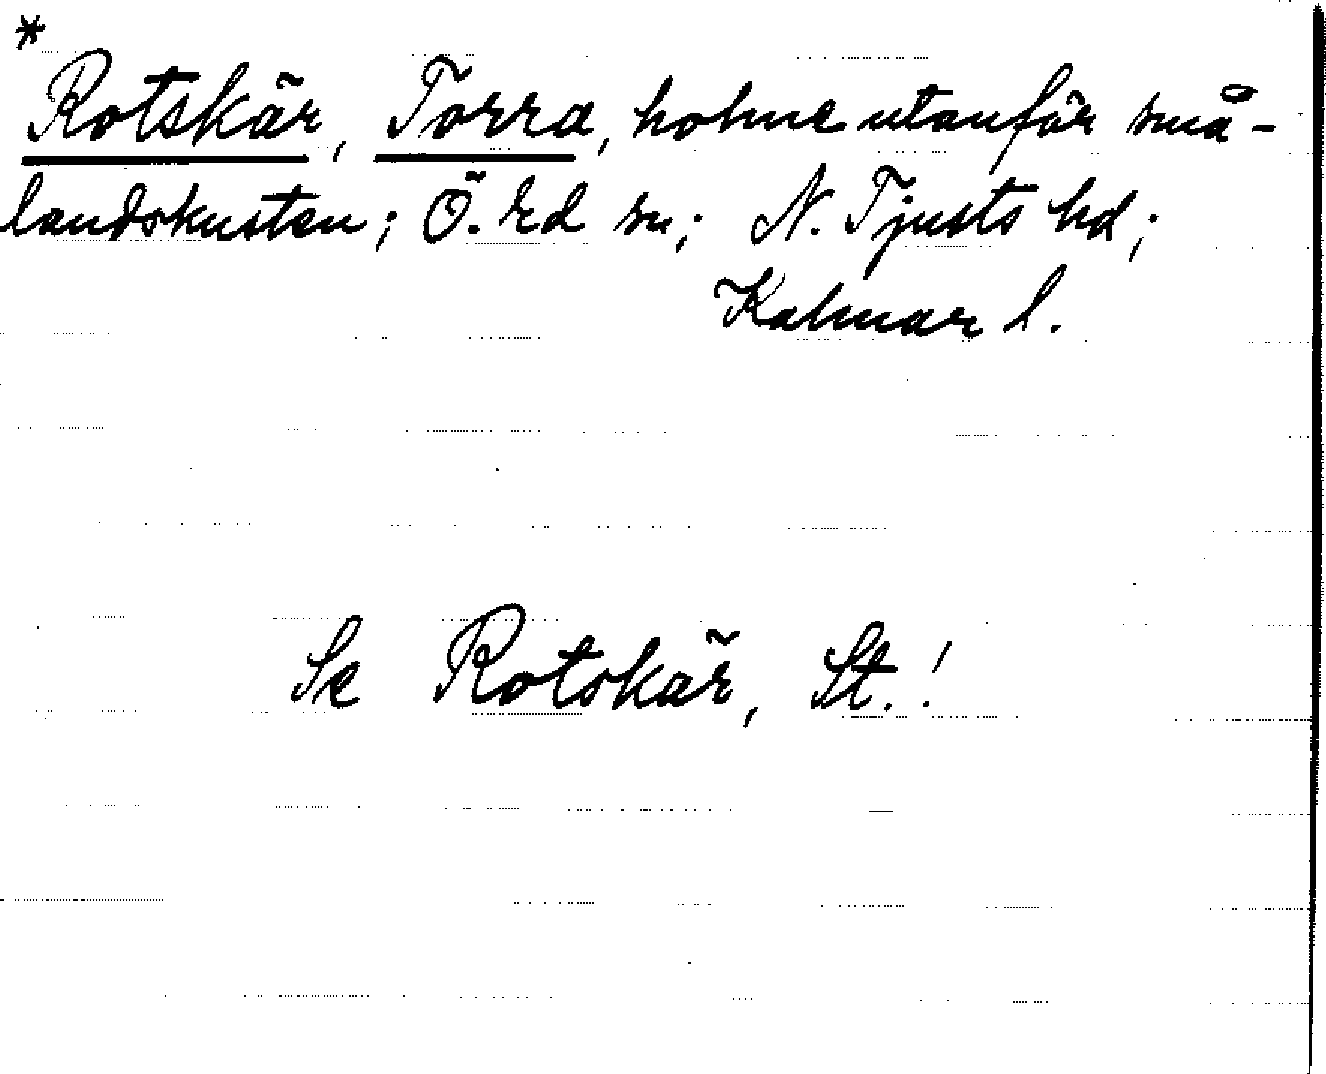 *
Rotskär, Torra, holme utanför små-
landskusten; Ö. Ed sn; N. Tjusts hd;
Kalmar l.
Se Rotskär, St.!